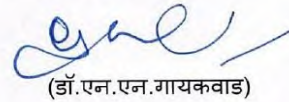 (डॉ.एन.एन.गायकवाड)